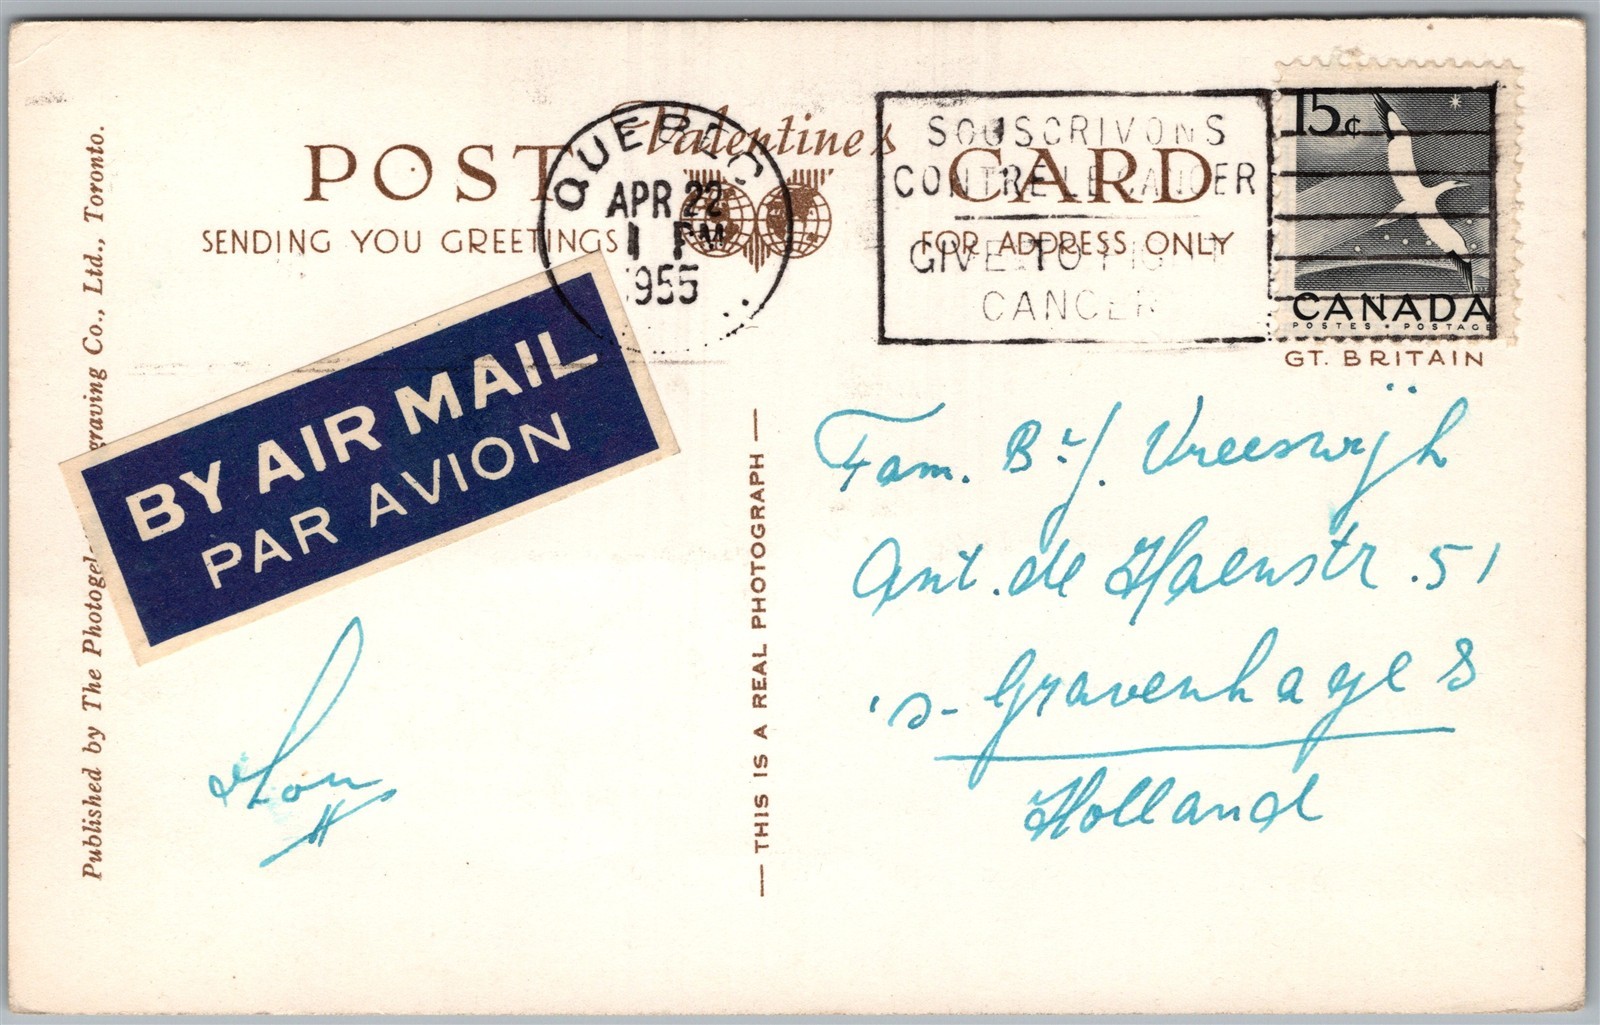 Published by The Photogel- graving Co., Ltd., Toronto.
POST CARD
Valentine's
SENDING YOU GREETINGS
FOR ADDRESS ONLY
QUEBEC
APR 22
1 PM
1955
SOUSCRIVONS
CONTRE LE CANCER
GIVE TO FIGHT
CANCER
15¢
CANADA
POSTES • POSTAGE
GT. BRITAIN
BY AIR MAIL
PAR AVION
— THIS IS A REAL PHOTOGRAPH —
Fam. Vreeswijk
Ant. de Haenstr. 51
's-Gravenhage
Holland